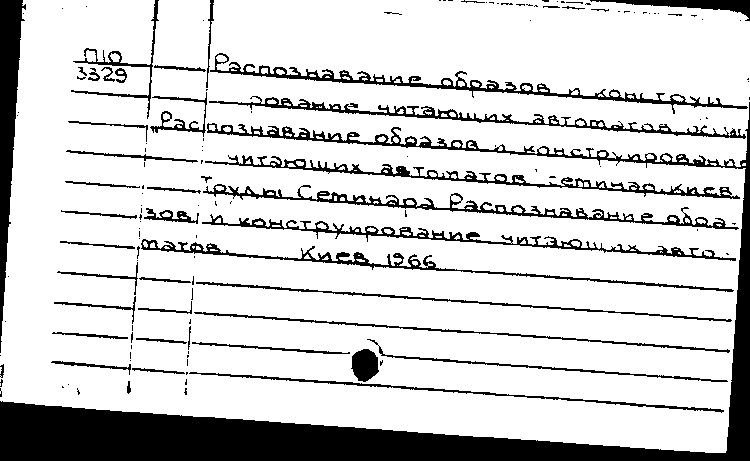 П10
3329
Распознавание образов и констру
рование читающих автоматов,
„Распознавание образов и конструирование
читающих автоматов" семинар. Киев.
Труды Семинара Распознавание обра-
зов и конструирование читающих авто-
матов. Киев, 1966